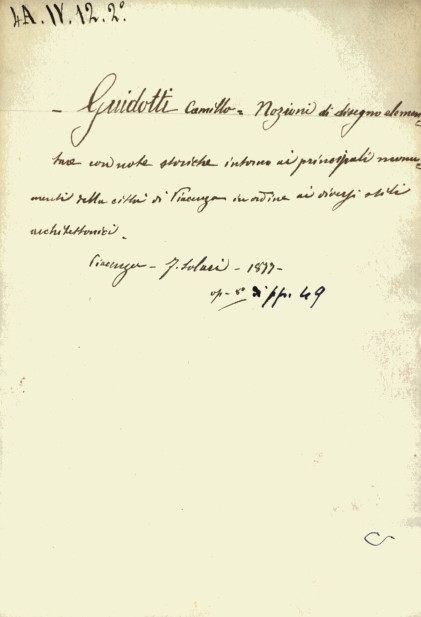 4A.IV.12.2º
- Guidotti Camillo - Nozioni di disegno elemen-
tare con note storiche intorno ai principali monu-
menti della città di Piacenza in ordine ai diversi stili
architettonici -
Piacenza - F. Solari - 1877 -
op - 8º di pp. 49